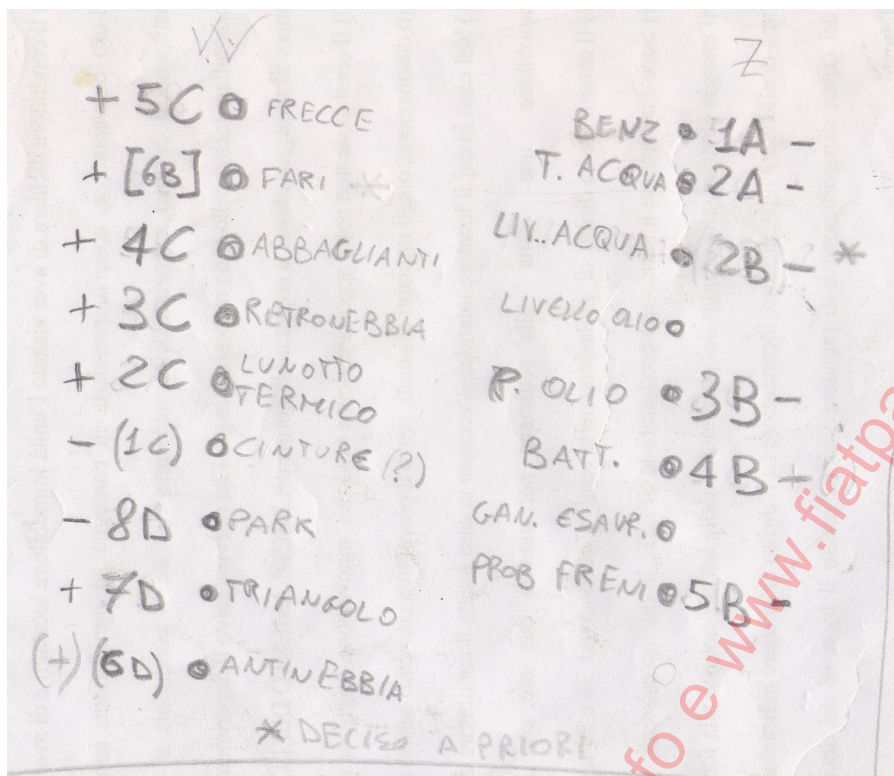 W
+ 5C FRECCE
+ [6B] FARI *
+ 4C ABBAGLIANTI
+ 3C RETRONEBBIA
+ 2C LUNOTTO
TERMICO
- (1C) CINTURE (?)
- 8D PARK
+ 7D TRIANGOLO
(+) (6D) ANTINEBBIA
* DECISO A PRIORI
Z
BENZ 1A -
T. ACQUA 2A -
LIV.. ACQUA 2B - *
LIVELLO OLIO
P. OLIO 3B -
BATT. 4B +
GAN. ESAUR.
PROB FRENI 5B -
fo e www.fiatpa